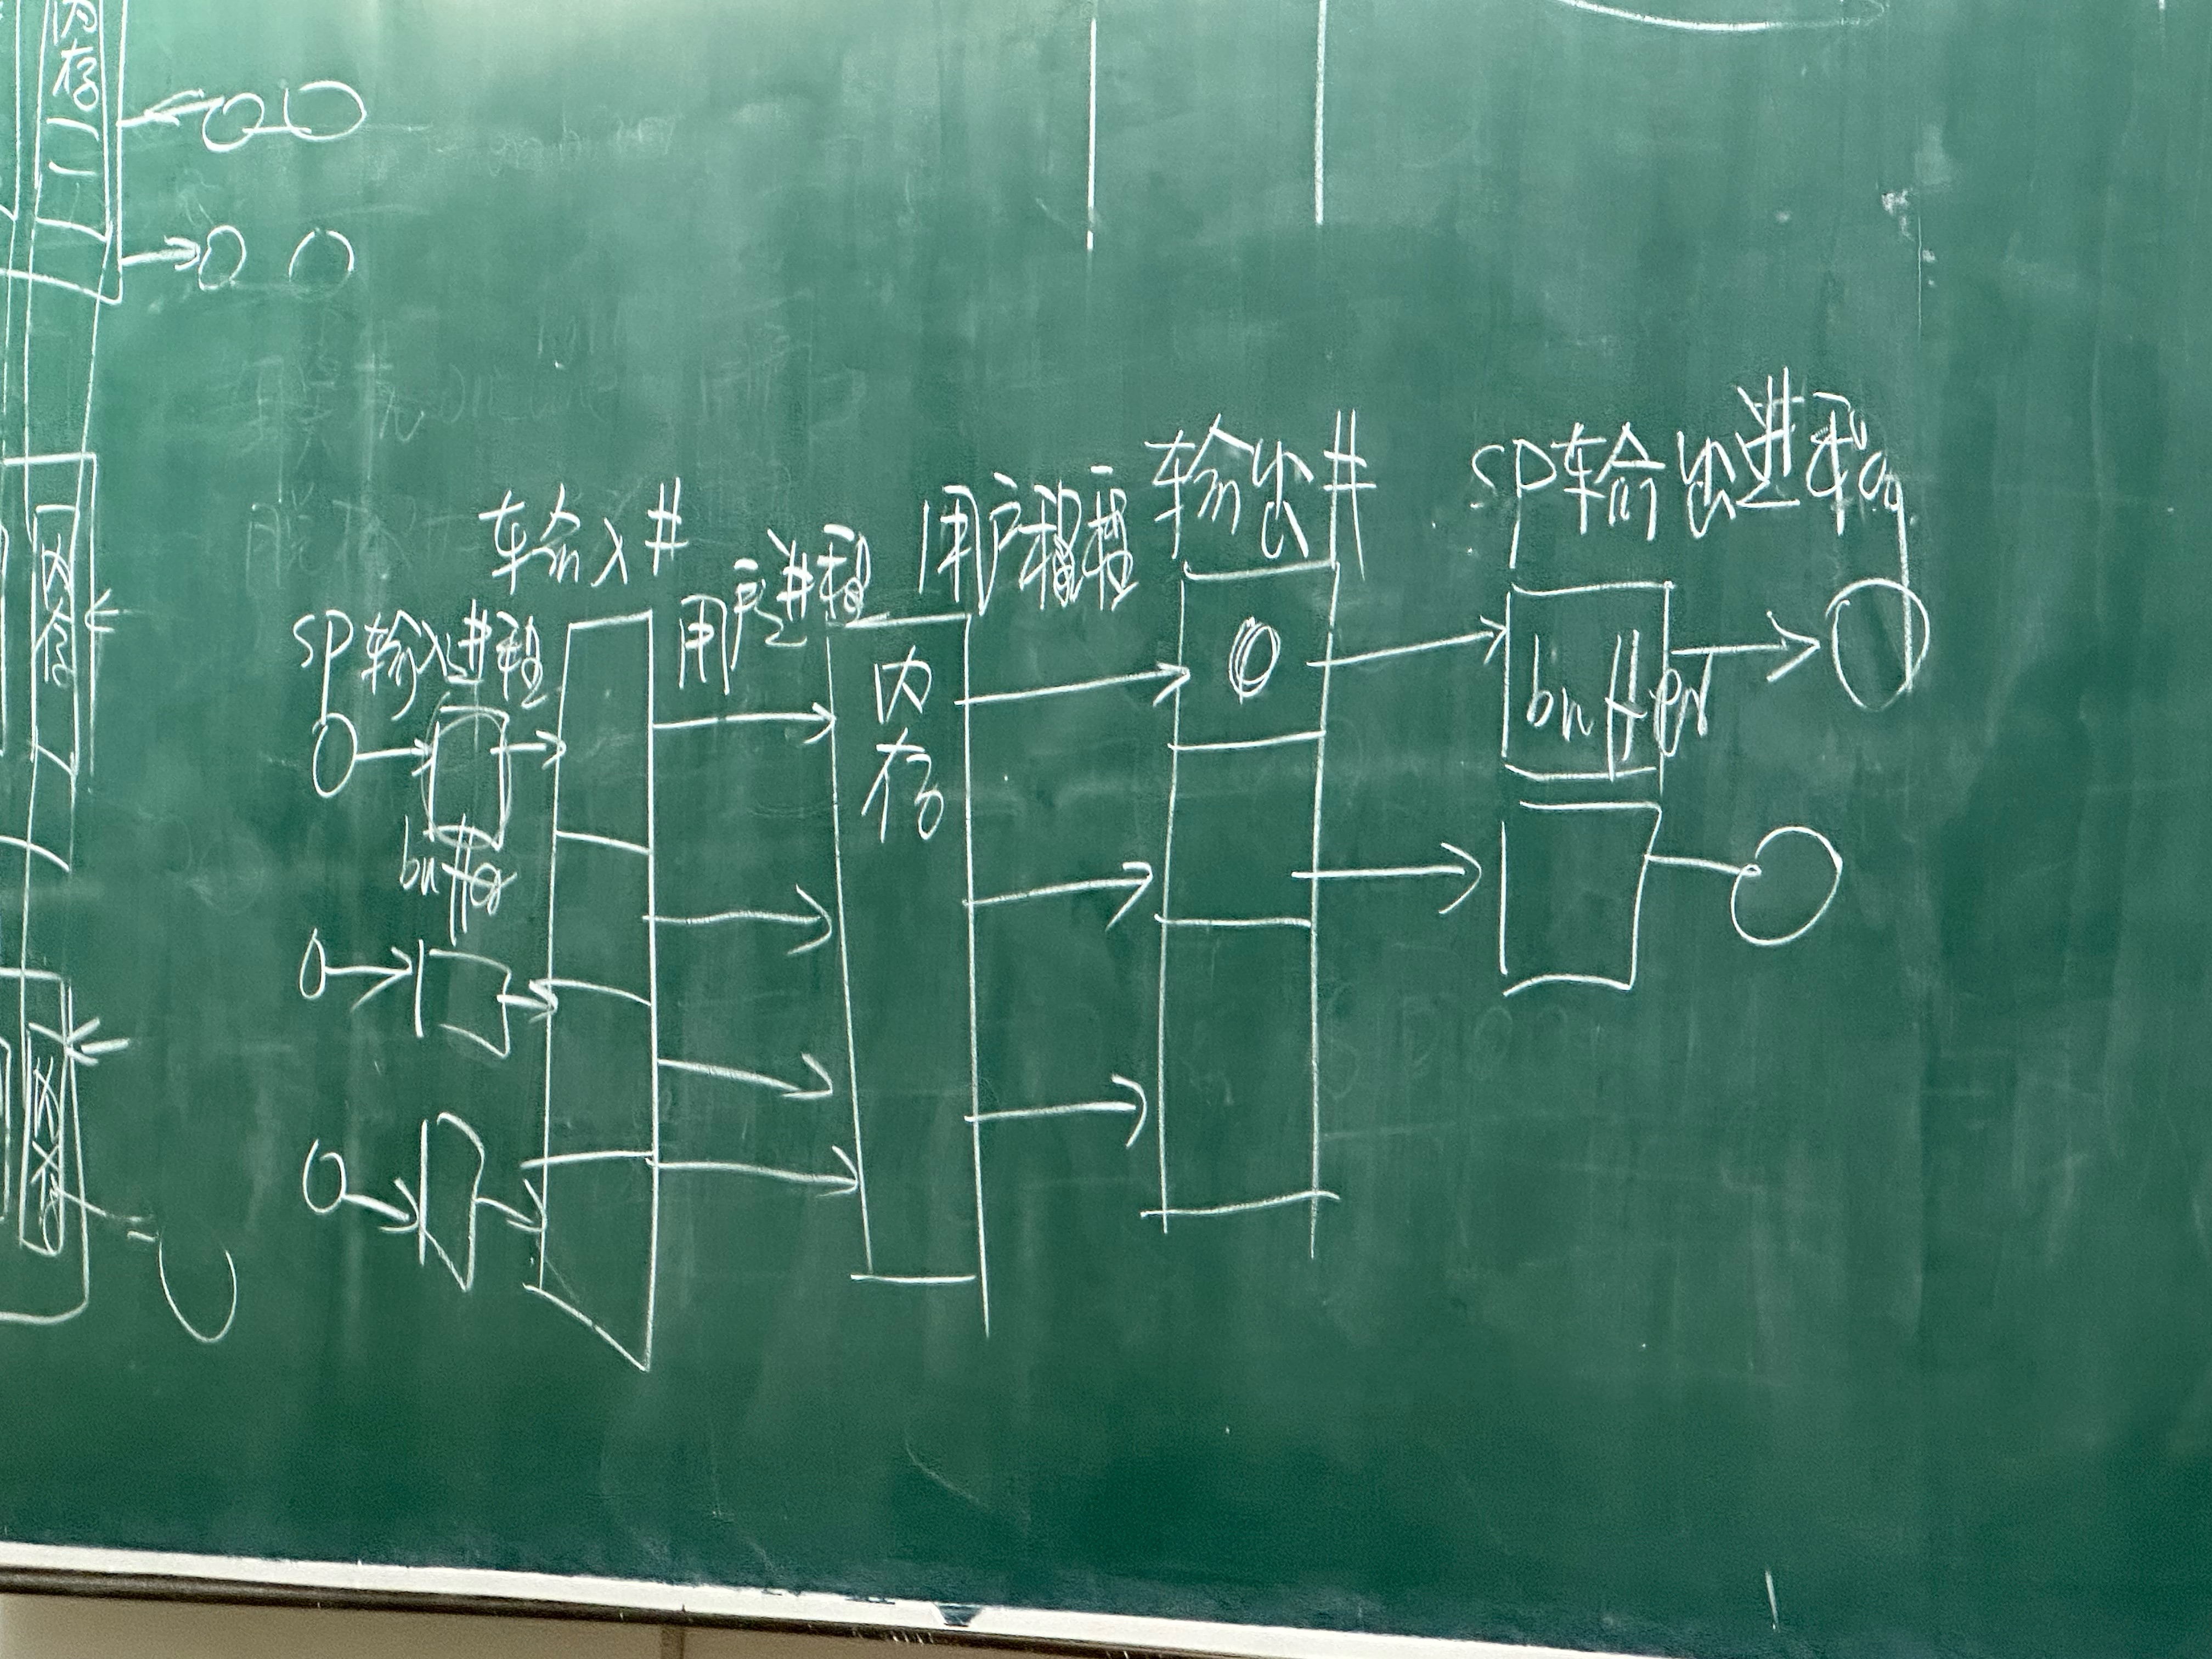 内存
内存
SP输入进程
buffer
输入井
用户进程
内存
用户进程
输出井
SP输出进程
buffer